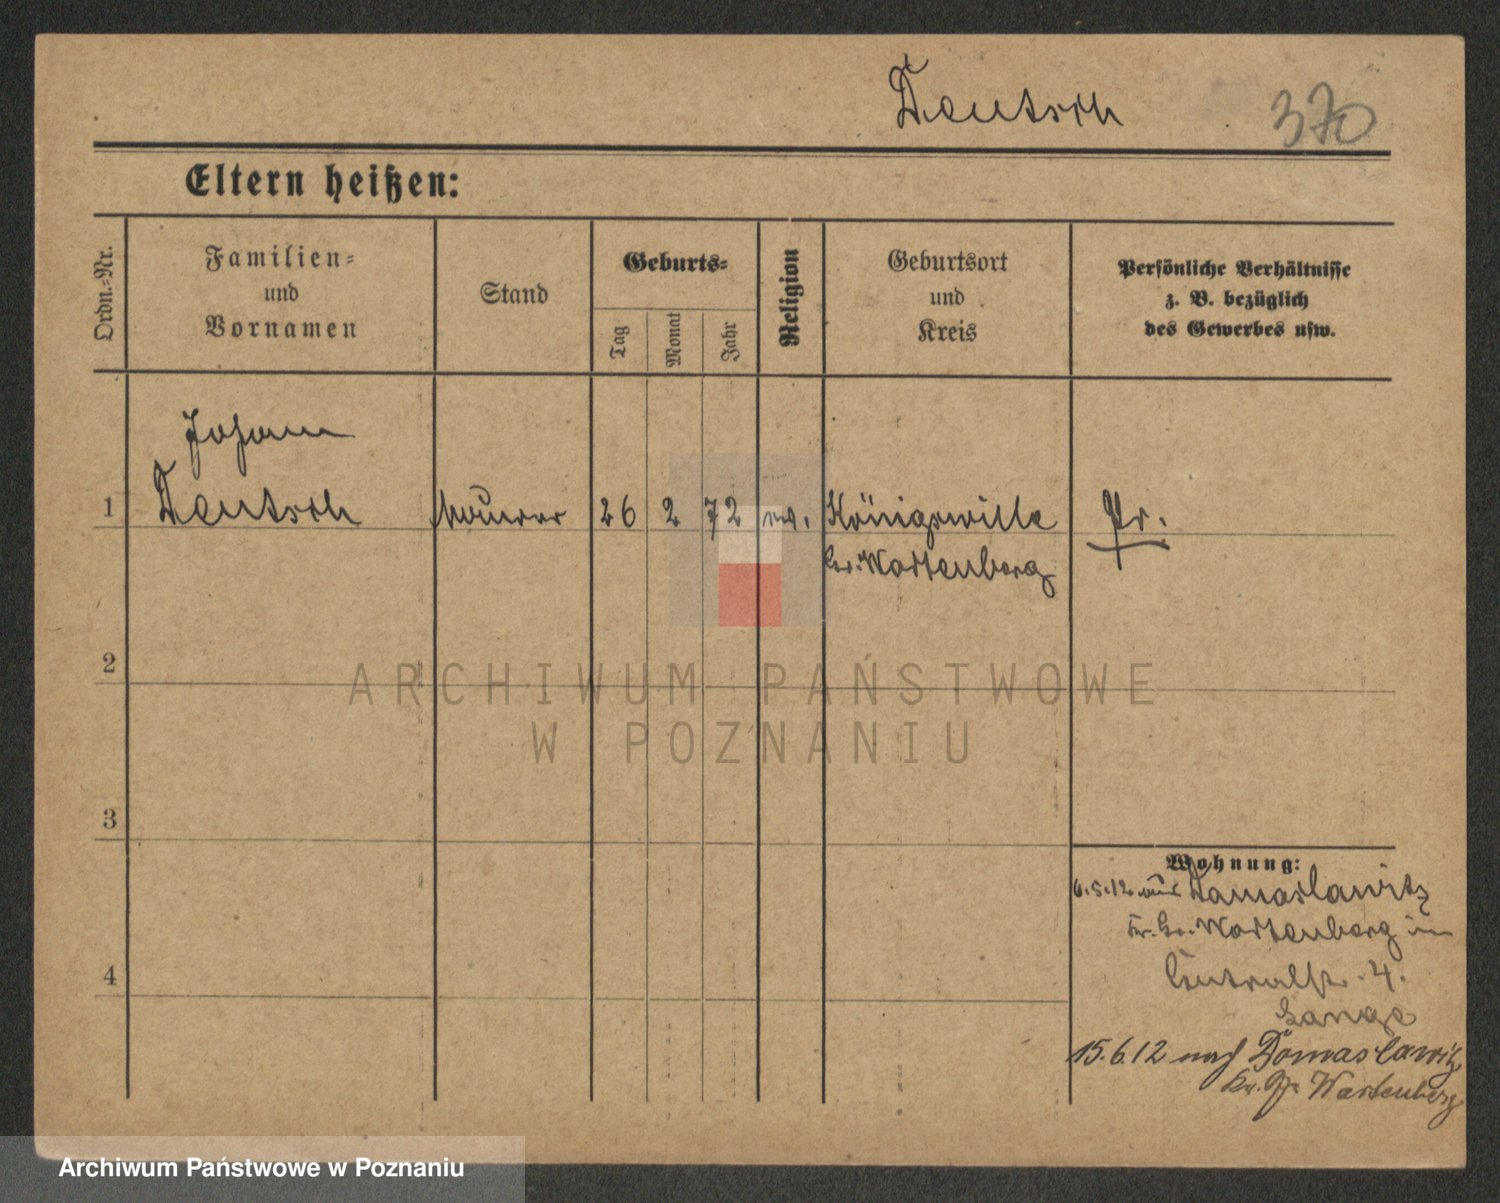 Deutsch 370
Eltern heißen:
Ordn.-Nr.
Familien-
und
Vornamen
Stand
Geburts-
Tag
Monat
Jahr
Religion
Geburtsort
und
Kreis
Persönliche Verhältnisse
z. B. bezüglich
des Gewerbes usw.
Johann
1 Deutsch Maurer 26 2 72 ev. Königswille Pr.
Kr. Wartenberg
2
3
4
Wohnung:
6.5.12 aus Domaslawitz
Kr. Gr. Wartenberg in
Centralstr. 4.
Lange
15.6.12 nach Domaslawitz
Kr. Gr. Wartenberg
ARCHIWUM PAŃSTWOWE
W POZNANIU
Archiwum Państwowe w Poznaniu